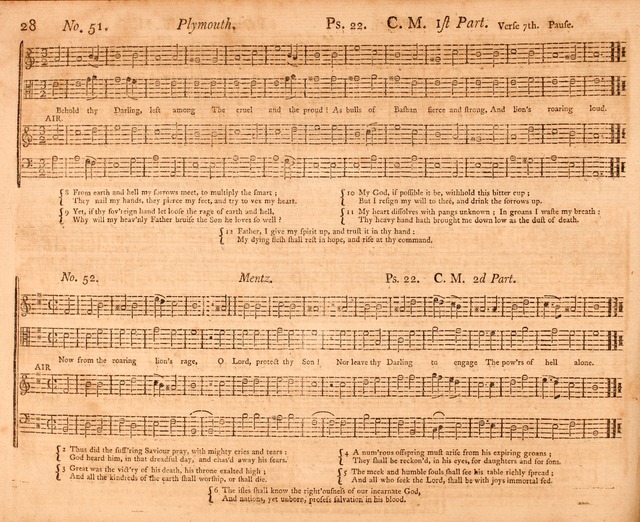 28 No. 51. Plymouth. Ps. 22. C. M. 1ſt Part. Verſe 7th. Pauſe.
Behold thy Darling, left among The cruel and the proud! As bulls of Baſhan fierce and ſtrong, And lion's roaring loud.
AIR.
8 From earth and hell my ſorrows meet, to multiply the ſmart;
They nail my hands, they pierce my feet, and try to vex my heart.
9 Yet, if thy ſov'reign hand let looſe the rage of earth and hell,
Why will my heav'nly Father bruiſe the Son he loves ſo well?
10 My God, if poſſible it be, withhold this bitter cup;
But I reſign my will to thee, and drink the ſorrows up.
11 My heart diſſolves with pangs unknown; In groans I waſte my breath:
Thy heavy hand hath brought me down low as the duſt of death.
12 Father, I give my ſpirit up, and truſt it in thy hand:
My dying fleſh ſhall reſt in hope, and riſe at thy command.
No. 52. Mentz. Ps. 22. C. M. 2d Part.
Now from the roaring lion's rage, O Lord, protect thy Son! Nor leave thy Darling to engage The pow'rs of hell alone.
AIR
2 Thus did the ſuff'ring Saviour pray, with mighty cries and tears:
God heard him, in that dreadful day, and chas'd away his fears.
3 Great was the vict'ry of his death, his throne exalted high;
And all the kindreds of the earth ſhall worſhip, or ſhall die.
4 A num'rous offspring muſt ariſe from his expiring groans;
They ſhall be reckon'd, in his eyes, for daughters and for ſons.
5 The meek and humble ſouls ſhall ſee his table richly ſpread;
And all who ſeek the Lord, ſhall be with joys immortal fed.
6 The iſles ſhall know the right'ouſneſs of our incarnate God,
And nations, yet unborn, profeſs ſalvation in his blood.